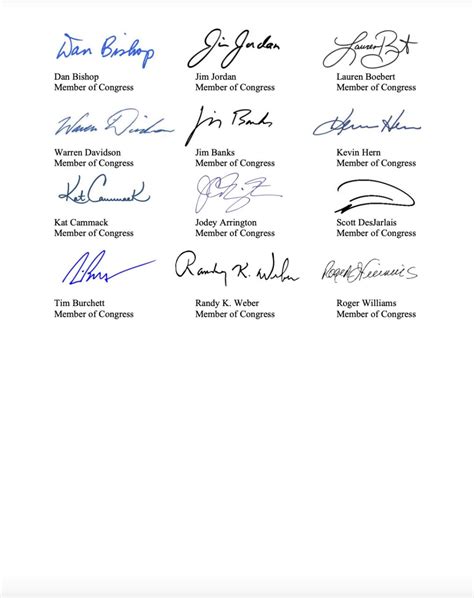 Dan Bishop Jim Jordan Lauren Bt
Dan Bishop Jim Jordan Lauren Boebert
Member of Congress Member of Congress Member of Congress
Warren Davidson Jim Banks Kevin Hern
Warren Davidson Jim Banks Kevin Hern
Member of Congress Member of Congress Member of Congress
Kat Cammack
Kat Cammack Jodey Arrington Scott DesJarlais
Member of Congress Member of Congress Member of Congress
Randy K. Weber Roger Williams
Tim Burchett Randy K. Weber Roger Williams
Member of Congress Member of Congress Member of Congress